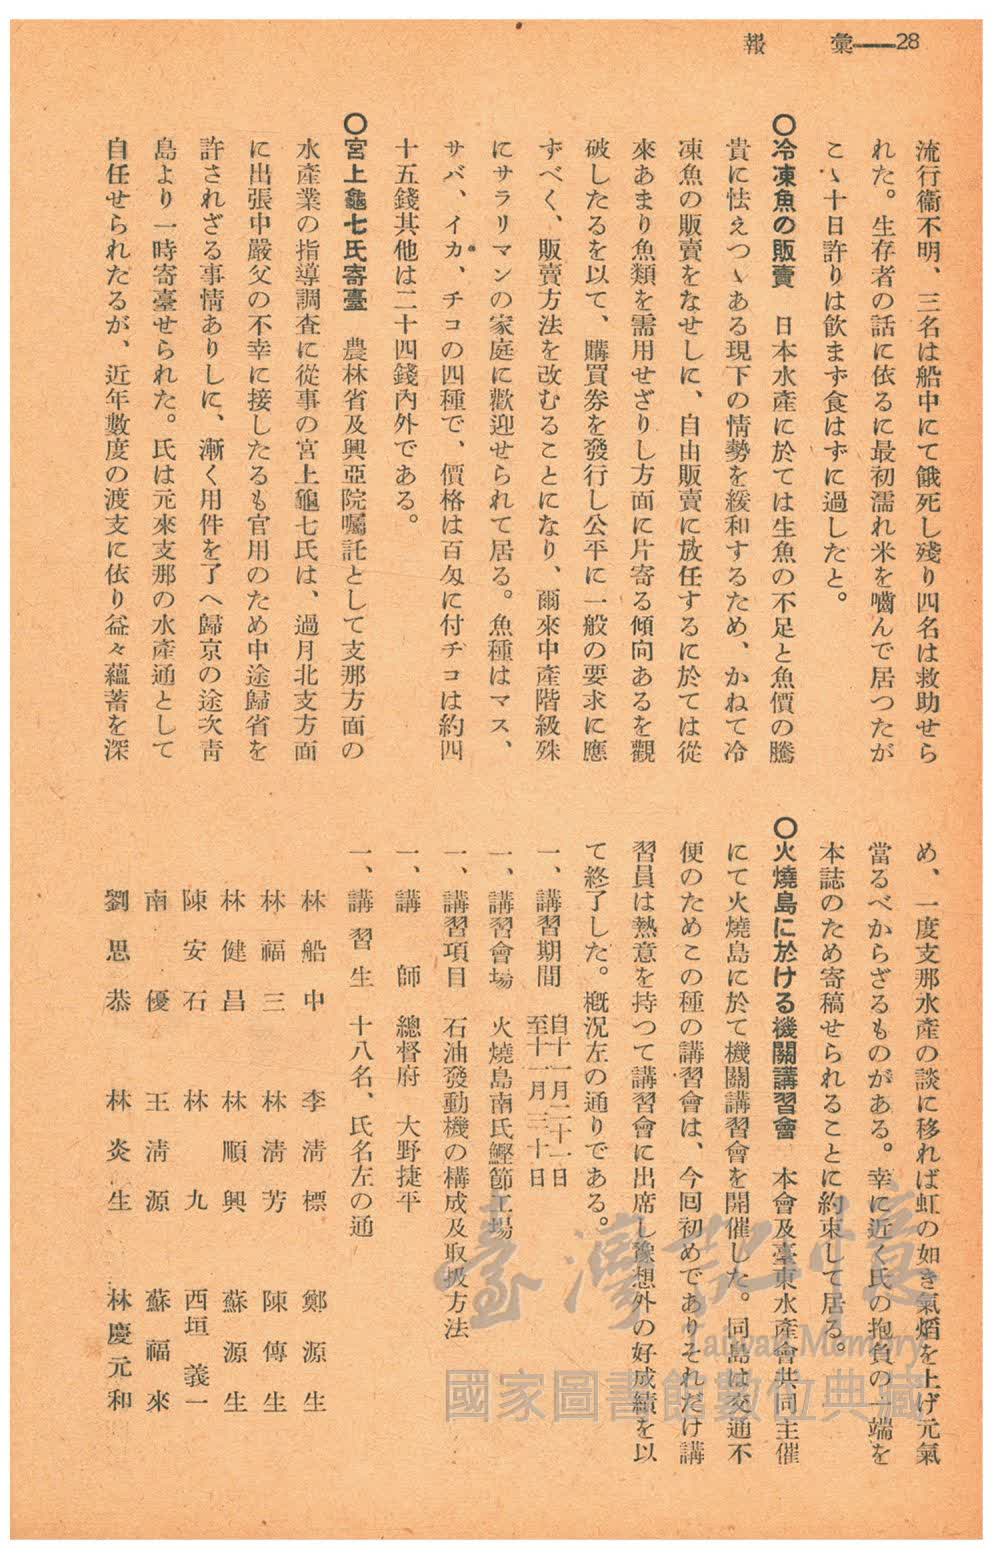 彙報――28
流行衞不明、三名は船中にて餓死し殘り四名は救助せら
れた。生存者の話に依るに最初濡れ米を嚙んで居つたが
こゝ十日許りは飮まず食はずに過したと。
〇冷凍魚の販賣　日本水產に於ては生魚の不足と魚價の騰
貴に怯えつゝある現下の情勢を緩和するため、かねて冷
凍魚の販賣をなせしに、自由販賣に放任するに於ては從
來あまり魚類を需用せざりし方面に片寄る傾向あるを觀
破したるを以て、購買券を發行し公平に一般の要求に應
ずべく、販賣方法を改むることになり、爾來中產階級殊
にサラリマンの家庭に歡迎せられて居る。魚種はマス、
サバ、イカ、チコの四種で、價格は百匁に付チコは約四
十五錢其他は二十四錢內外である。
〇宮上龜七氏寄臺　農林省及興亞院囑託として支那方面の
水產業の指導調査に從事の宮上龜七氏は、過月北支方面
に出張中嚴父の不幸に接したるも官用のため中途歸省を
許されざる事情ありしに、漸く用件を了へ歸京の途次靑
島より一時寄臺せられた。氏は元來支那の水產通として
自任せられたるが、近年數度の渡支に依り益々蘊蓄を深
め、一度支那水產の談に移れば虹の如き氣焰を上げ元氣
當るべからざるものがある。幸に近く氏の抱負の一端を
本誌のため寄稿せられることに約束して居る。
〇火燒島に於ける機關講習會　本會及臺東水產會共同主催
にて火燒島に於て機關講習會を開催した。同島は交通不
便のためこの種の講習會は、今囘初めでありそれだけ講
習員は熱意を持つて講習會に出席し豫想外の好成績を以
て終了した。槪況左の通りである。
一、講習期間　自十一月二十一日
至十一月三十日
一、講習會場　火燒島南氏鰹節工場
一、講習項目　石油發動機の構成及取扱方法
一、講師　總督府　大野捷平
一、講習生　十八名、氏名左の通
林船中　李淸標　鄭源生
林福三　林淸芳　陳傳生
林健昌　林順興　蘇源生
陳安石　林九　西垣義一
南優　王淸源　蘇福來
劉思恭　林炎生　林慶元和
臺灣記憶
Taiwan Memory
國家圖書館數位典藏